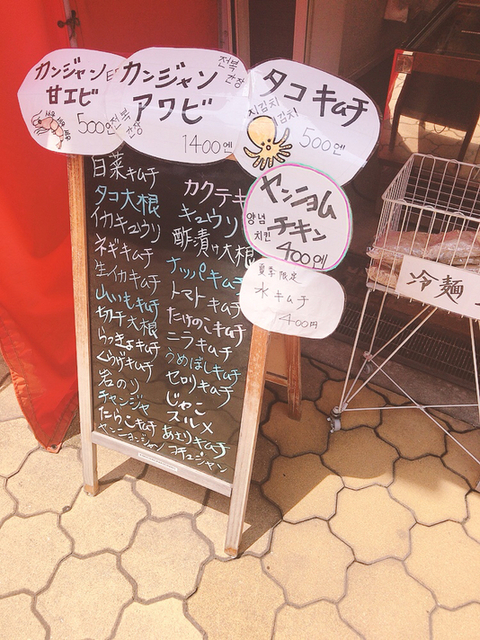 カンジャン
甘エビ
500엔
カンジャン
アワビ
전복
간장
1400엔
タコキムチ
김치
500엔
ヤンニョム
양념
치킨
チキン
400엔
夏季限定
水キムチ
400円
冷麺
白菜キムチ
タコ大根
イカキュウリ
ネギキムチ
生イカキムチ
山いもキムチ
切干大根
らっきょキムチ
くらげキムチ
岩のり
チャンジャ
たらこキムチ
カクテキ
キュウリ
酢漬け大根
ナッパキムチ
トマトキムチ
たけのこキムチ
ニラキムチ
うめぼしキムチ
セロリキムチ
じゃこ
スルメ
あさりキムチ
コチュジャン